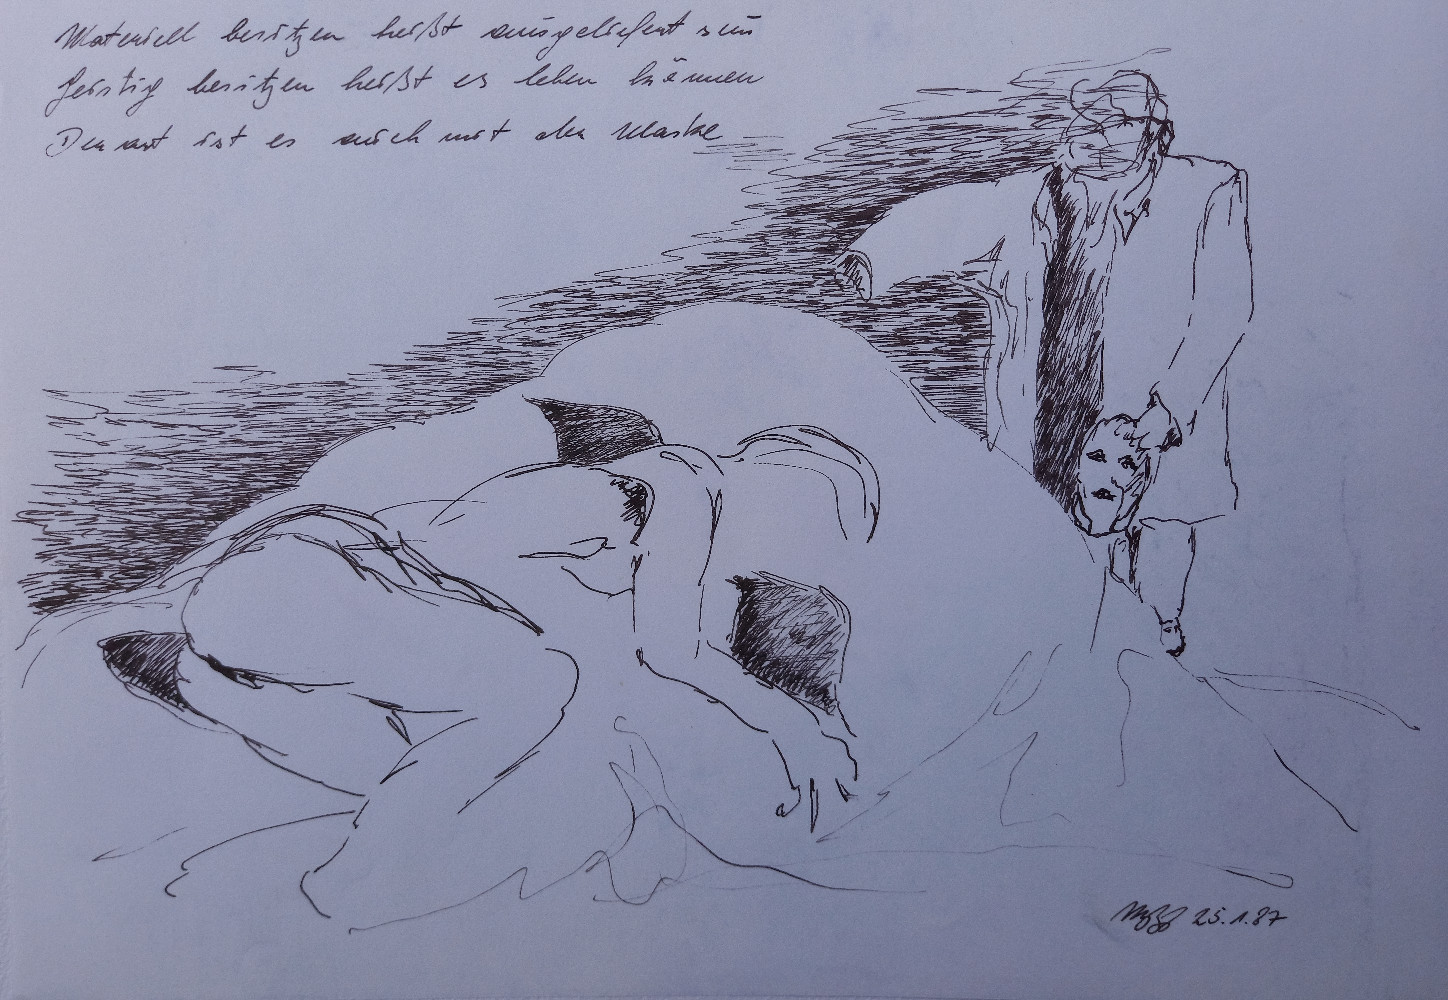 Materiell besitzen heißt ausgeliefert sein
Geistig besitzen heißt es leben können
Derart ist es auch mit der Maske
25.1.87